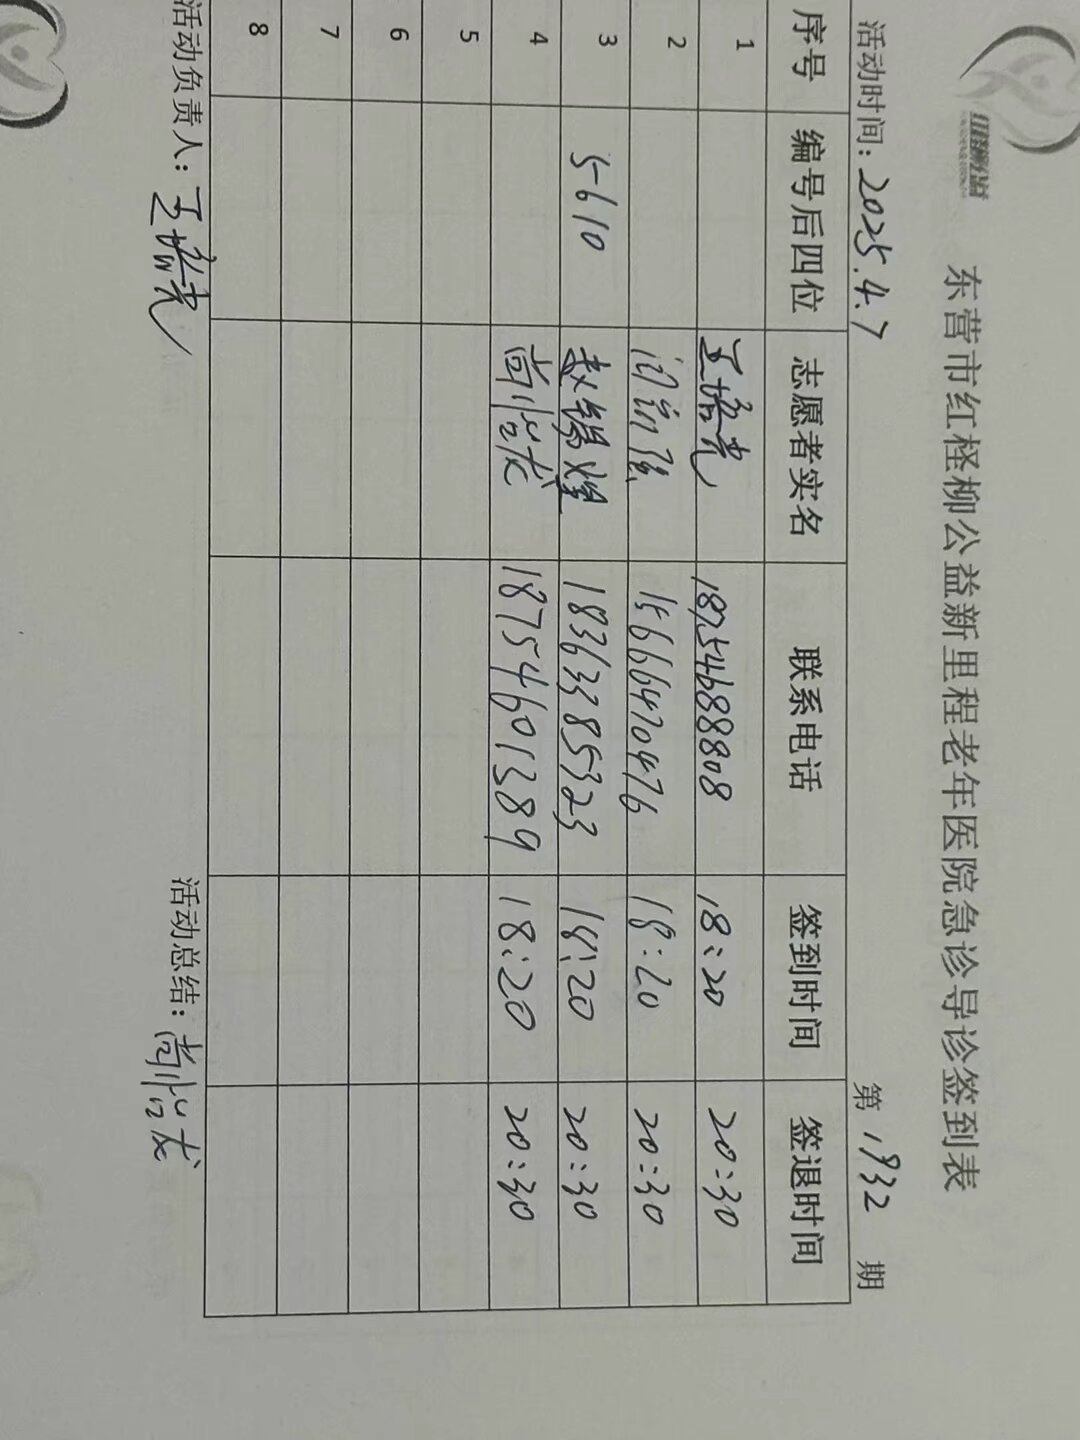 东营市红柽柳公益新里程老年医院急诊导诊签到表
活动时间：2025.4.7 第1932期
序号 编号后四位 志愿者实名 联系电话 签到时间 签退时间
1 18754688808 18:20 20:30
2 15666470476 18:20 20:30
3 5610 赵锡煌 18363385323 18:20 20:30
4 18754601389 18:20 20:30
5
6
7
8
活动负责人： 活动总结：